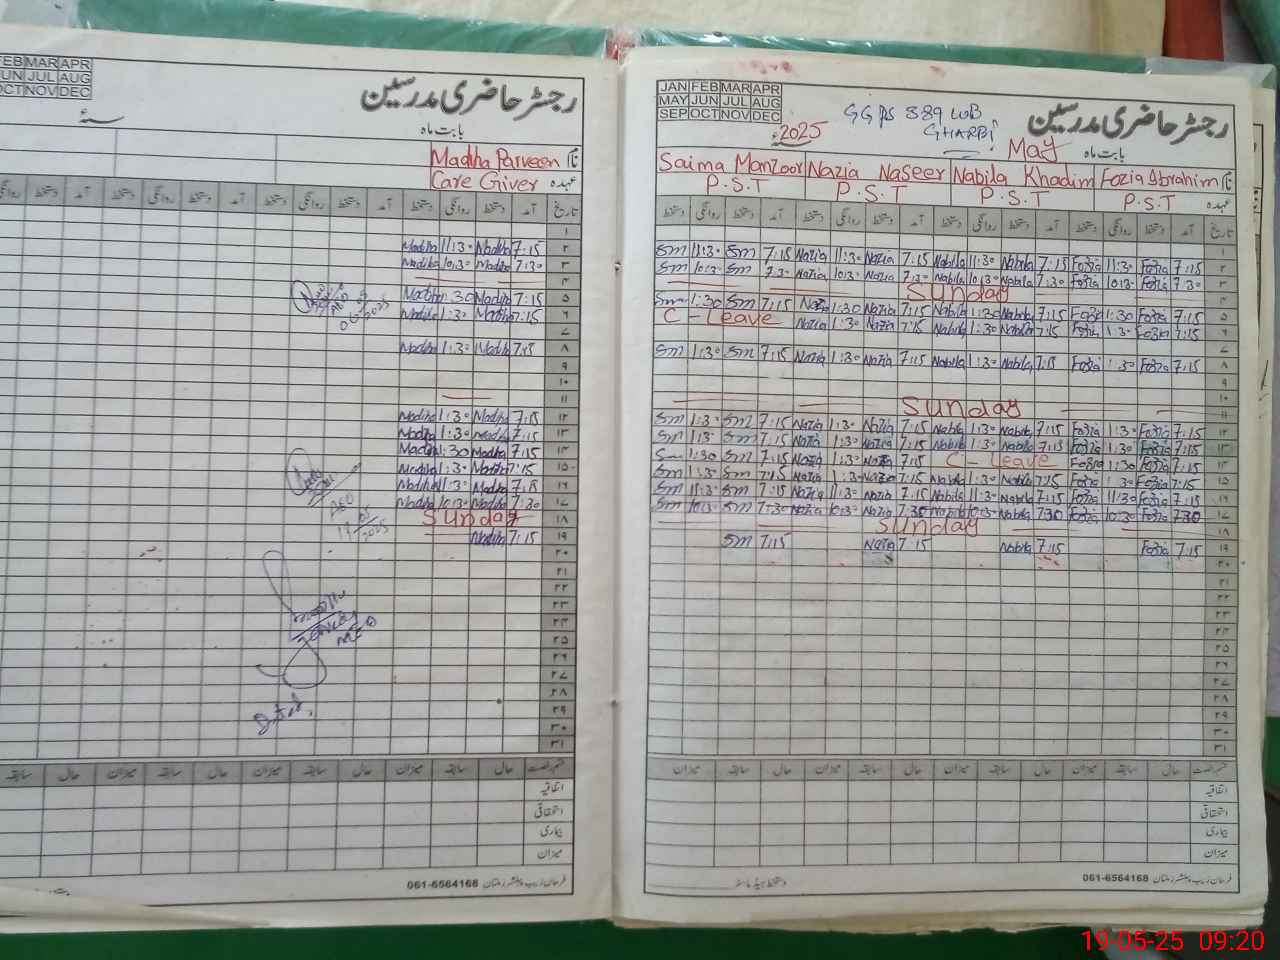 FEB MAR APR
JUN JUL AUG
OCT NOV DEC
رجسٹر حاضری مدرسین
بابت ماہ
سنۂ
نام Madiha Parveen
عہدہ Care Giver
تاریخ آمد دستخط روانگی دستخط آمد دستخط روانگی دستخط آمد دستخط روانگی دستخط
۱
۲ 7:15 Madiha 11:30 Madiha
۳ 7:30 Madiha 10:30 Madiha
۴
۵ 7:15 Madiha 1:30 Madiha
۶ 7:15 Madiha 1:30 Madiha
۷
۸ 7:15 Madiha 1:30 Madiha
۹
۱۰
۱۱
۱۲ 7:15 Madiha 1:30 Madiha
۱۳ 7:15 Madiha 1:30 Madiha
۱۴ 7:15 Madiha 1:30 Madiha
۱۵ 7:15 Madiha 1:30 Madiha
۱۶ 7:15 Madiha 11:30 Madiha
۱۷ 7:30 Madiha 10:30 Madiha
۱۸ Sunday
۱۹ 7:15 Madiha
۲۰
۲۱
۲۲
۲۳
۲۴
۲۵
۲۶
۲۷
۲۸
۲۹
۳۰
۳۱
AEO
2025
قسم رخصت حال سابقہ میزان حال سابقہ میزان حال سابقہ میزان حال سابقہ
اتفاقیہ
استحقاقی
بیماری
میزان
061-6564168
JAN FEB MAR APR
MAY JUN JUL AUG
SEP OCT NOV DEC
GGPS 389 WB
GHARBI
رجسٹر حاضری مدرسین
2025 سنۂ
May بابت ماہ
نام Fozia Ibrahim Nabila Khadim Nazia Naseer Saima Manzoor
عہدہ P.S.T P.S.T P.S.T P.S.T
تاریخ آمد دستخط روانگی دستخط آمد دستخط روانگی دستخط آمد دستخط روانگی دستخط آمد دستخط روانگی دستخط
۱
۲ 7:15 Fozia 11:30 Fozia 7:15 Nabila 11:30 Nabila 7:15 Nazia 11:30 Nazia 7:15 Sm 11:30 Sm
۳ 7:30 Fozia 10:30 Fozia 7:30 Nabila 10:30 Nabila 7:30 Nazia 10:30 Nazia 7:30 Sm 10:30 Sm
۴ Sunday
۵ 7:15 Fozia 1:30 Fozia 7:15 Nabila 1:30 Nabila 7:15 Nazia 1:30 Nazia 7:15 Sm 1:30 Sm
۶ 7:15 Fozia 1:30 Fozia 7:15 Nabila 1:30 Nabila 7:15 Nazia 1:30 Nazia C - Leave
۷
۸ 7:15 Fozia 1:30 Fozia 7:15 Nabila 1:30 Nabila 7:15 Nazia 1:30 Nazia 7:15 Sm 1:30 Sm
۹
۱۰
۱۱ Sunday
۱۲ 7:15 Fozia 1:30 Fozia 7:15 Nabila 1:30 Nabila 7:15 Nazia 1:30 Nazia 7:15 Sm 1:30 Sm
۱۳ 7:15 Fozia 1:30 Fozia 7:15 Nabila 1:30 Nabila 7:15 Nazia 1:30 Nazia 7:15 Sm 1:3 Sm
۱۴ 7:15 Fozia 1:30 Fozia C - Leave 7:15 Nazia 1:30 Nazia 7:15 Sm 1:30 Sm
۱۵ 7:15 Fozia 1:30 Fozia 7:15 Nabila 1:30 Nabila 7:15 Nazia 1:30 Nazia 7:15 Sm 1:30 Sm
۱۶ 7:15 Fozia 11:30 Fozia 7:15 Nabila 11:30 Nabila 7:15 Nazia 11:30 Nazia 7:15 Sm 11:30 Sm
۱۷ 7:30 Fozia 10:30 Fozia 7:30 Nabila 10:30 Nabila 7:30 Nazia 10:30 Nazia 7:30 Sm 10:30 Sm
۱۸ Sunday
۱۹ 7:15 Fozia 7:15 Nabila 7:15 Nazia 7:15 Sm
۲۰
۲۱
۲۲
۲۳
۲۴
۲۵
۲۶
۲۷
۲۸
۲۹
۳۰
۳۱
قسم رخصت حال سابقہ میزان حال سابقہ میزان حال سابقہ میزان حال سابقہ میزان
اتفاقیہ
استحقاقی
بیماری
میزان
دستخط ہیڈ ماسٹر
061-6564168
19-05-25 09:20